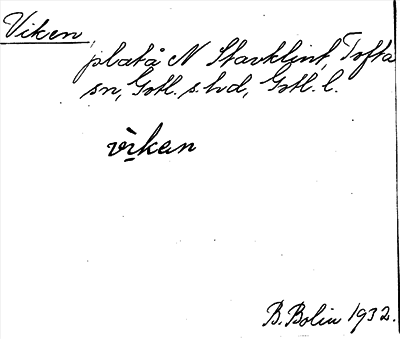 Viken,
plats å N Stavklint, Tofta
sn, Gotl. s. hd, Gotl. l.
vìkan
B. Bolin 1932.